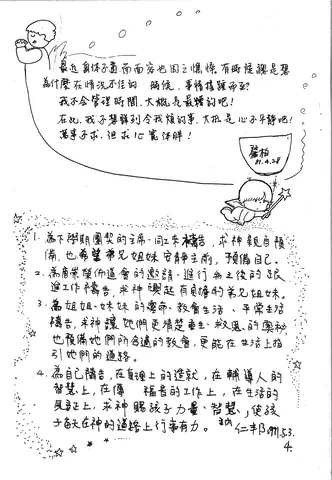 最近身体不適,而面容也因之憔悴。有時候總是想
為什麼在情況不佳的 時候,事情接踵而至?
我不会管理時間,大概是最糟的吧!
在此,我不想歸到令我煩的事,大概是心不平靜吧!
萬事不求,但求心寬体胖!
馨柏
81.4.28
1. 為下學期團契的主席、同工來禱告,求神親自預
備,也希望弟兄姐妹安靜主前,預備自己。
2. 為畢業佈道會的邀請、進行與之後的跟
進工作禱告,求神興起有負擔的弟兄姐妹。
3. 為姐姐、妹妹的靈命、教會生活、平常生活
禱告,求神讓她們更清楚重生、救恩的奧祕
也預備她們所合適的教會,更能在生活上指
引她們的道路。
4. 為自己禱告,在真理上的造就,在輔導人的
智慧上,在傳 福音的工作上,在生活的
見証上,求神賜孩子力量、智慧,使孩
子每天在神的道路上行事有力。
仁丰 1991.5.3.
4.